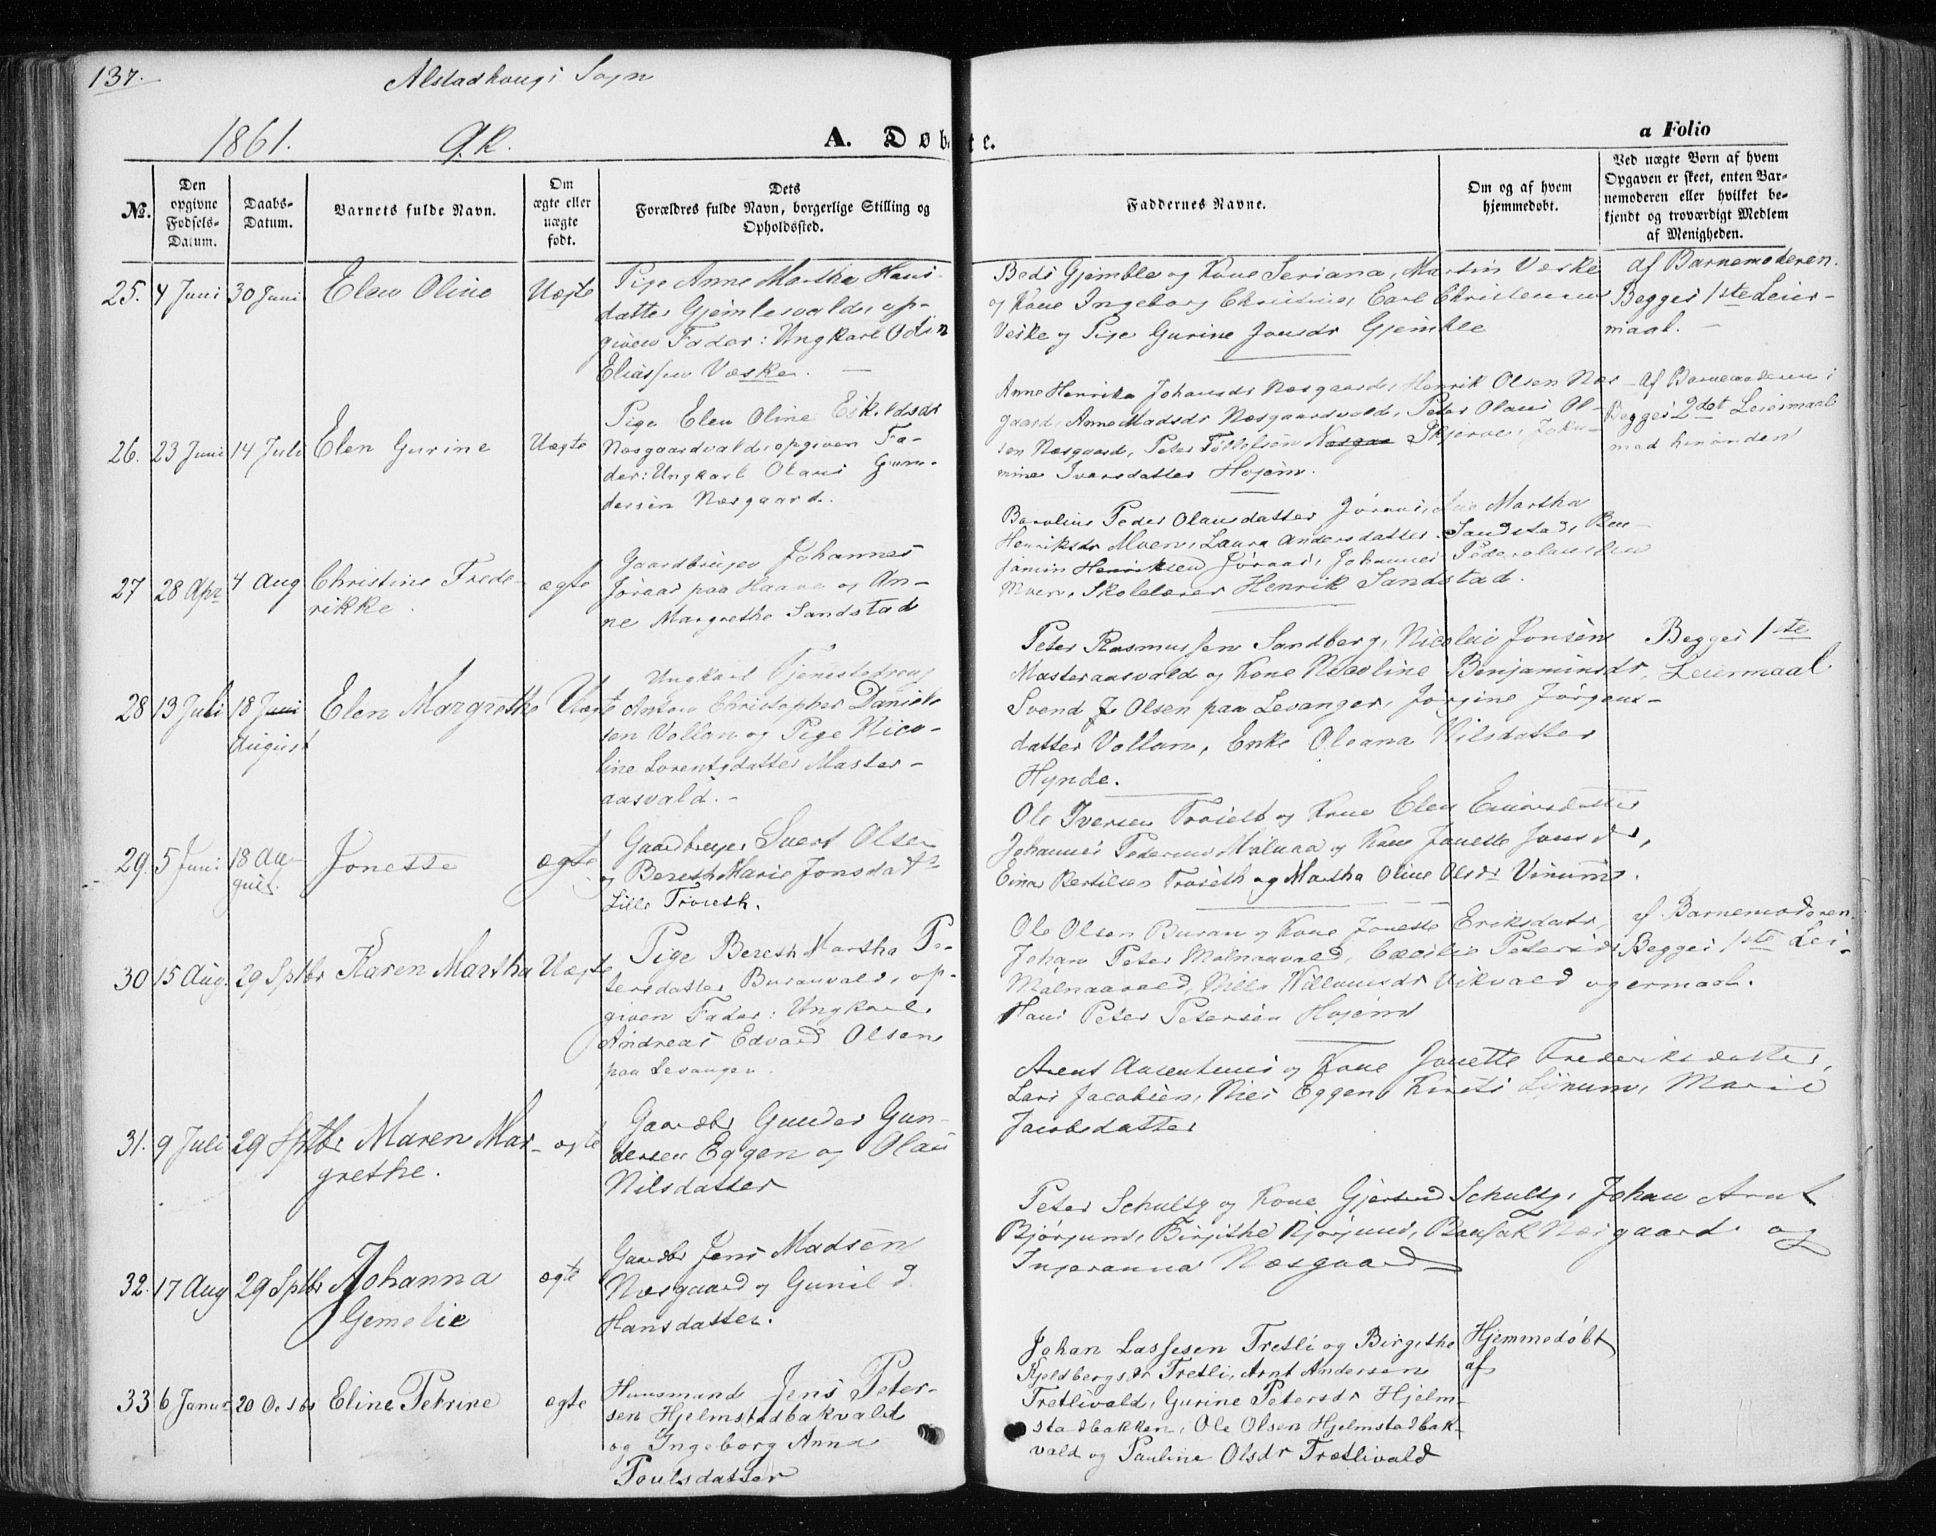 137.
Alstadhougs Sogn
1861.
Q.K.
A. Døbte.
a Folio
No.
Den opgivne Fødsels-Datum.
Daabs-Datum.
Barnets fulde Navn.
Om ægte eller uægte født.
Dets Forældres fulde Navn, borgerlige Stilling og Opholdssted.
Faddernes Navne.
Om og af hvem hjemmedøbt.
Ved uægte Børn af hvem Opgaven er skeet, enten Barnemoderen eller hvilket bekjendt og troværdigt Medlem af Menigheden.
25. 4 Juni 30 Juni Elen Oline Uægte
Pige Anne Martha Hans-
datter Gjemlesvald, op-
given Fader: Ungkarl Odin
Eliassen Væske. —
Gjemble og Kone Seriana, Martin Væske
og Kone Ingeborg Christine, Carl Christensen
Veske og Pige Gurine Jonsdr Gjemble
af Barnemoderen.
Begges 1ste Leier-
maal. —
26. 23 Juni 14 Juli Elen Gurine Uægte
Pige Elen Oline Eskildsdr
Næsgaardvald, opgiven Fa-
der: Ungkarl Olaus Gun-
dersen Næsgaard.
Anne Henrika Johansdr Næsgaard, Henrik Olsen Næs-
gaard, Anne Madsdr Næsgaardvald, Peter Olaus Ol-
sen Næsgaard, Peter Skjerve, Joha-
mine Iversdatter Hojem.
af Barnemoderen
Begges 2det Leiermaal
med hinanden
27 28 Apr 4 Aug Christine Frede-
rikke. ægte
Gaardbruger Johannes
Jøraas paa Haaa og An-
ne Margrethe Sandstad
Peder Olausdatter Jøraas, Martha
Henriksdr Moen, Laura Andersdatter Sandstad, Ben-
jamin Henriksen Jøraas, Johannes Pederolausen
Moen, Skolelærer Henrik Sandstad.
28 13 Juli 18 Juni
August
Elen Margrethe Uægte
Ungkarl Tjenestedreng
Anton Christopher Daniel-
sen Vollan og Pige Nico-
line Lorentzdatter Master-
aasvald. -
Peter Rasmussen Sandberg, Nicolai Jonsen
Masteraasvald og Kone Nicoline Benjaminsdr,
Svend J Olsen paa Levanger, Jørgine Jørgens-
datter Vollan, Enke Oleana Nilsdatter
Hynde.
Begges 1ste
Leiermaal
29. 5 Juni 18 Au-
gust. Jonette ægte
Gaardbruger Sivert Olsen
og Bereth Marie Jonsdatr
Lille Trøseth.
Ole Iversen Trøseth og Kone Elen Einarsdatter
Johannes Pedersen Molnaa og Kone Jonette Jonsdr,
Einar Bertilsen Trøseth og Martha Oline Olsdr Vinum.
30 15 Aug. 29 Sptbr Karen Martha Uægte
Pige Bereth Martha Pe-
tersdatter Buranvald, op-
given Fader: Ungkarl
Andreas Edvard Olsen
paa Levanger.
Ole Olsen Buran og Kone Jonette Eriksdatr,
Johan Peter Molnaavald, Cecilie Petersdr
Molnaavald, Nille Villumsdr Vikvald og
Hans Peter Petersen Hojem
af Barnemoderen.
Begges 1ste Lei-
ermaal.
31. 9 Juli 29 Sptbr Maren Mar-
grethe. ægte
Gaardbr Gunder Gun-
dersen Eggen og Olau
Nilsdatter
Arent Aasenhuus og Kone Jonette Frederiksdatter,
Lars Jacobsen, Eggen, Kirsti Lynum, Marie
Jacobsdatter
32. 17 Aug 29 Sptbr Johanna
Gemelie ægte
Gaardbr Jens Madsen
Næsgaard og Gunild
Hansdatter.
Peter Schultz og Kone Gjertrud Schultz, Johan Arnt
Bjørjum, Birgithe Bjørjum, Næsgaard og
Ingeranna Næsgaard
33 6 Januar 20 Octbr Eline Petrine ægte
Huusmand Jens Peter-
sen Hjelmstadbakvald
og Ingeborg Anna
Poulsdatter
Johan Lassesen Tretli og Birgithe
Kjeldbergsdr Tretli, Arnt Andersen
Tretlivald, Gurine Petersdr Hjelm-
stadbakken, Ole Olsen Hjelmstadbak-
vald og Pauline Olsdr Trætlivald
Hjemmedøbt
af